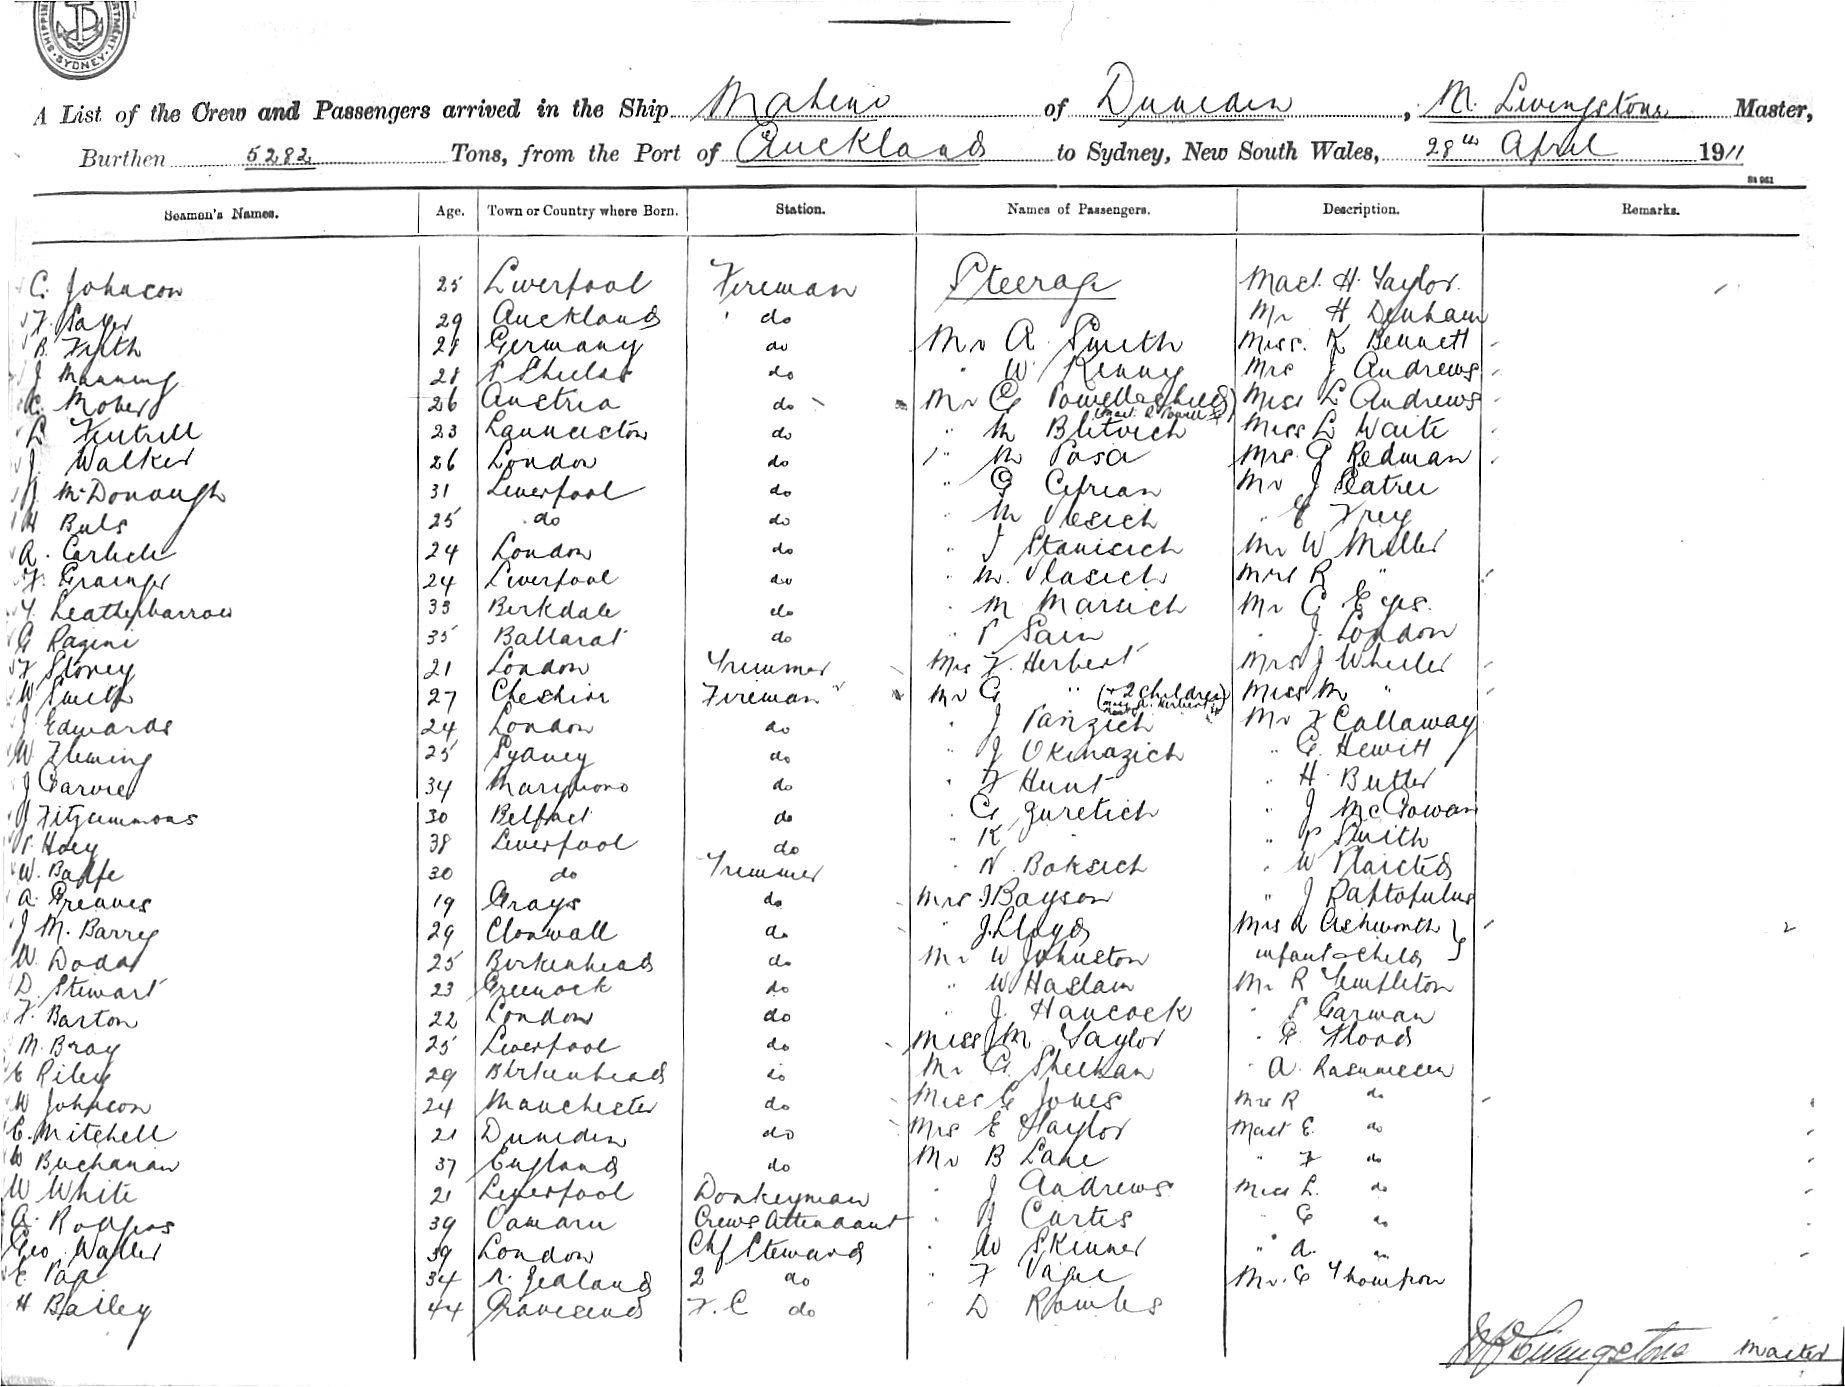 SYDNEY
A List of the Crew and Passengers arrived in the Ship Maheno of Dunedin, M. Livingstone Master,
Burthen 5282 Tons, from the Port of Auckland to Sydney, New South Wales, 28th April 1911
Seamen's Names. Age. Town or Country where Born. Station. Names of Passengers. Description. Remarks.
C. Johnson 25 Liverpool Fireman Steerage Mast. H. Taylor
F. Sayer 29 Auckland do Mr H Denham
B. Frith 28 Germany do Mr A. Smith Miss. K Bennett
J Manning 28 S Shields do " W Kenny Mrs J Andrews
Mober 26 Austria do Mr C Powell & child Miss L Andrews
L 23 Launceston do " M Blitvich Miss L Waite
J. Walker 26 London do " M Posa Mrs G Redman
McDonough 31 Liverpool do " G Ciprian Mr J Seatree
H Buls 25 do do " M Vlesich " E Frey
A. Carlisle 24 London do " J Stanisich Mr W Miller
F. Grainger 24 Liverpool do " M. Vlasich Mrs R "
Leatherbarrow 33 Birkdale do " M Marsich Mr C Eyes
G Ragini 35 Ballarat do " P Sain " J. London
F Storey 21 London Trimmer Mrs F. Herbert Mrs J Wheeler
W Smith 27 Cheshire Fireman Mr G " (+ 2 children) Miss M "
J Edwards 24 London do " J Panzich Mr F Callaway
W Fleming 25 Sydney do " J Okmazich " G. Hewitt
J Garvie 34 do " F Hunt " H. Butler
J Fitzsimmons 30 Belfast do " G Juretich " J McGowan
P. Hoey 38 Liverpool do " K " " P Smith
W. Balfe 30 do Trimmer " N. Boksich " W Plaisted
A. Greaves 19 Grays do Mrs J Bayson " J Raptopulus
J M. Barry 29 Clonwall do " J. Lloyd Mrs A Ashworth
W. Dodd 25 Birkenhead do Mr W Johnston infant & child
D. Stewart 23 Greenock do " W Haslam Mr R Templeton
F. Barton 22 London do " J. Hancock " S Garman
M. Bray 25 Liverpool do Miss M Taylor " E. Flood
E Riley 29 Birkenhead do Mr G. Sheehan " A. Rasmussen
W Johnson 24 Manchester do Miss G Jones Mrs R do
E. Mitchell 21 Dunedin do Mrs E Taylor Mast E. do
W Buchanan 37 England do Mr B Lane " F do
W White 21 Liverpool Donkeyman " J Andrews Miss L. do
A. Rodgers 39 Oamaru Crews Attendant " J Curtis " G do
Geo Waller 39 London Chf Steward " W Skinner " A. do
E Page 34 N. Zealand 2 do " F Vague Mr. G Thompson
H Bailey 44 Gravesend F. C do " D Rowles
Livingstone Master